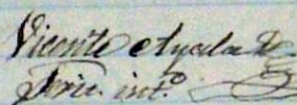 Vicente Ayala
Srio. int.º